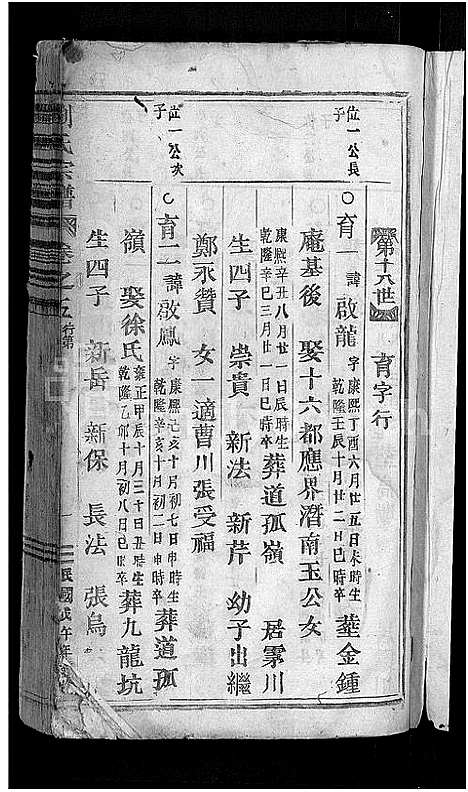 第十八世　育字行
位一公長子
○育一　諱啟龍　字　康熙丁酉六月廿五日未時生
乾隆壬辰十月廿二日巳時卒　塟金鍾
庵基後　娶十六都應界潛南玉公女
康熙辛丑八月廿一日辰時生
乾隆辛巳三月廿一日亥時卒　葬道孤嶺　居霁川
生四子　崇貴　新法　新芹　幼子出繼
鄭永贊　女一適曹川張受福
位一公次子
○育二　諱啟鳳　字　康熙己亥十月初七日申時生
乾隆辛亥十月初二日申時卒　葬道孤
嶺　娶徐氏　雍正甲辰十月三十日丑時生
乾隆乙卯十月初八日巳時卒　葬九龍坑
生四子　新岳　新保　長法　張烏
氏宗譜　卷之五　行第　一　民國戊午年